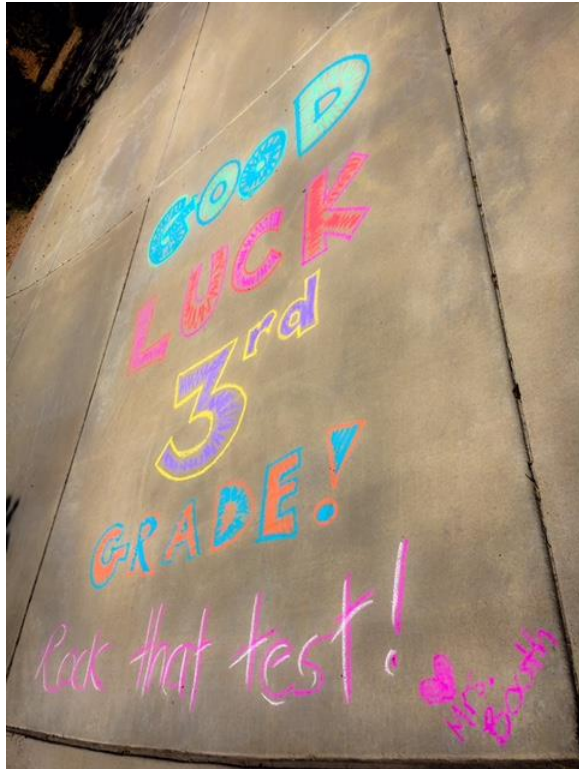 GOOD
LUCK
3rd
GRADE!
Rock that test!
Mrs.